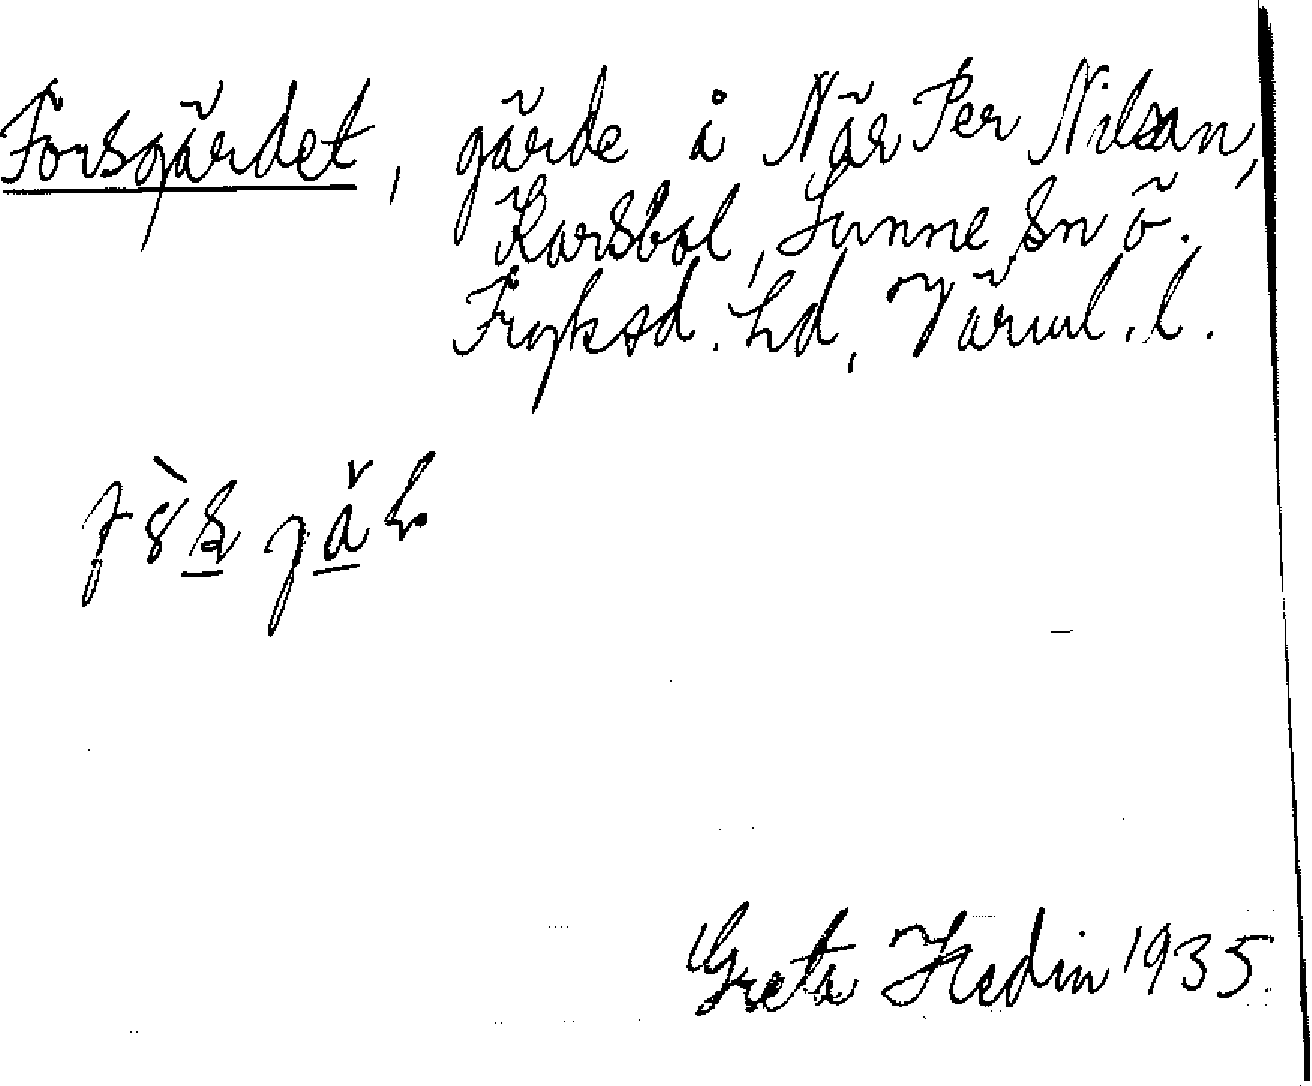 Forsgärdet, gärde i När Per Nilsan,
Karsbol, Sunne sn Ö.
Fryksd. hd, Värml. l.
Greta Hedin 1935.